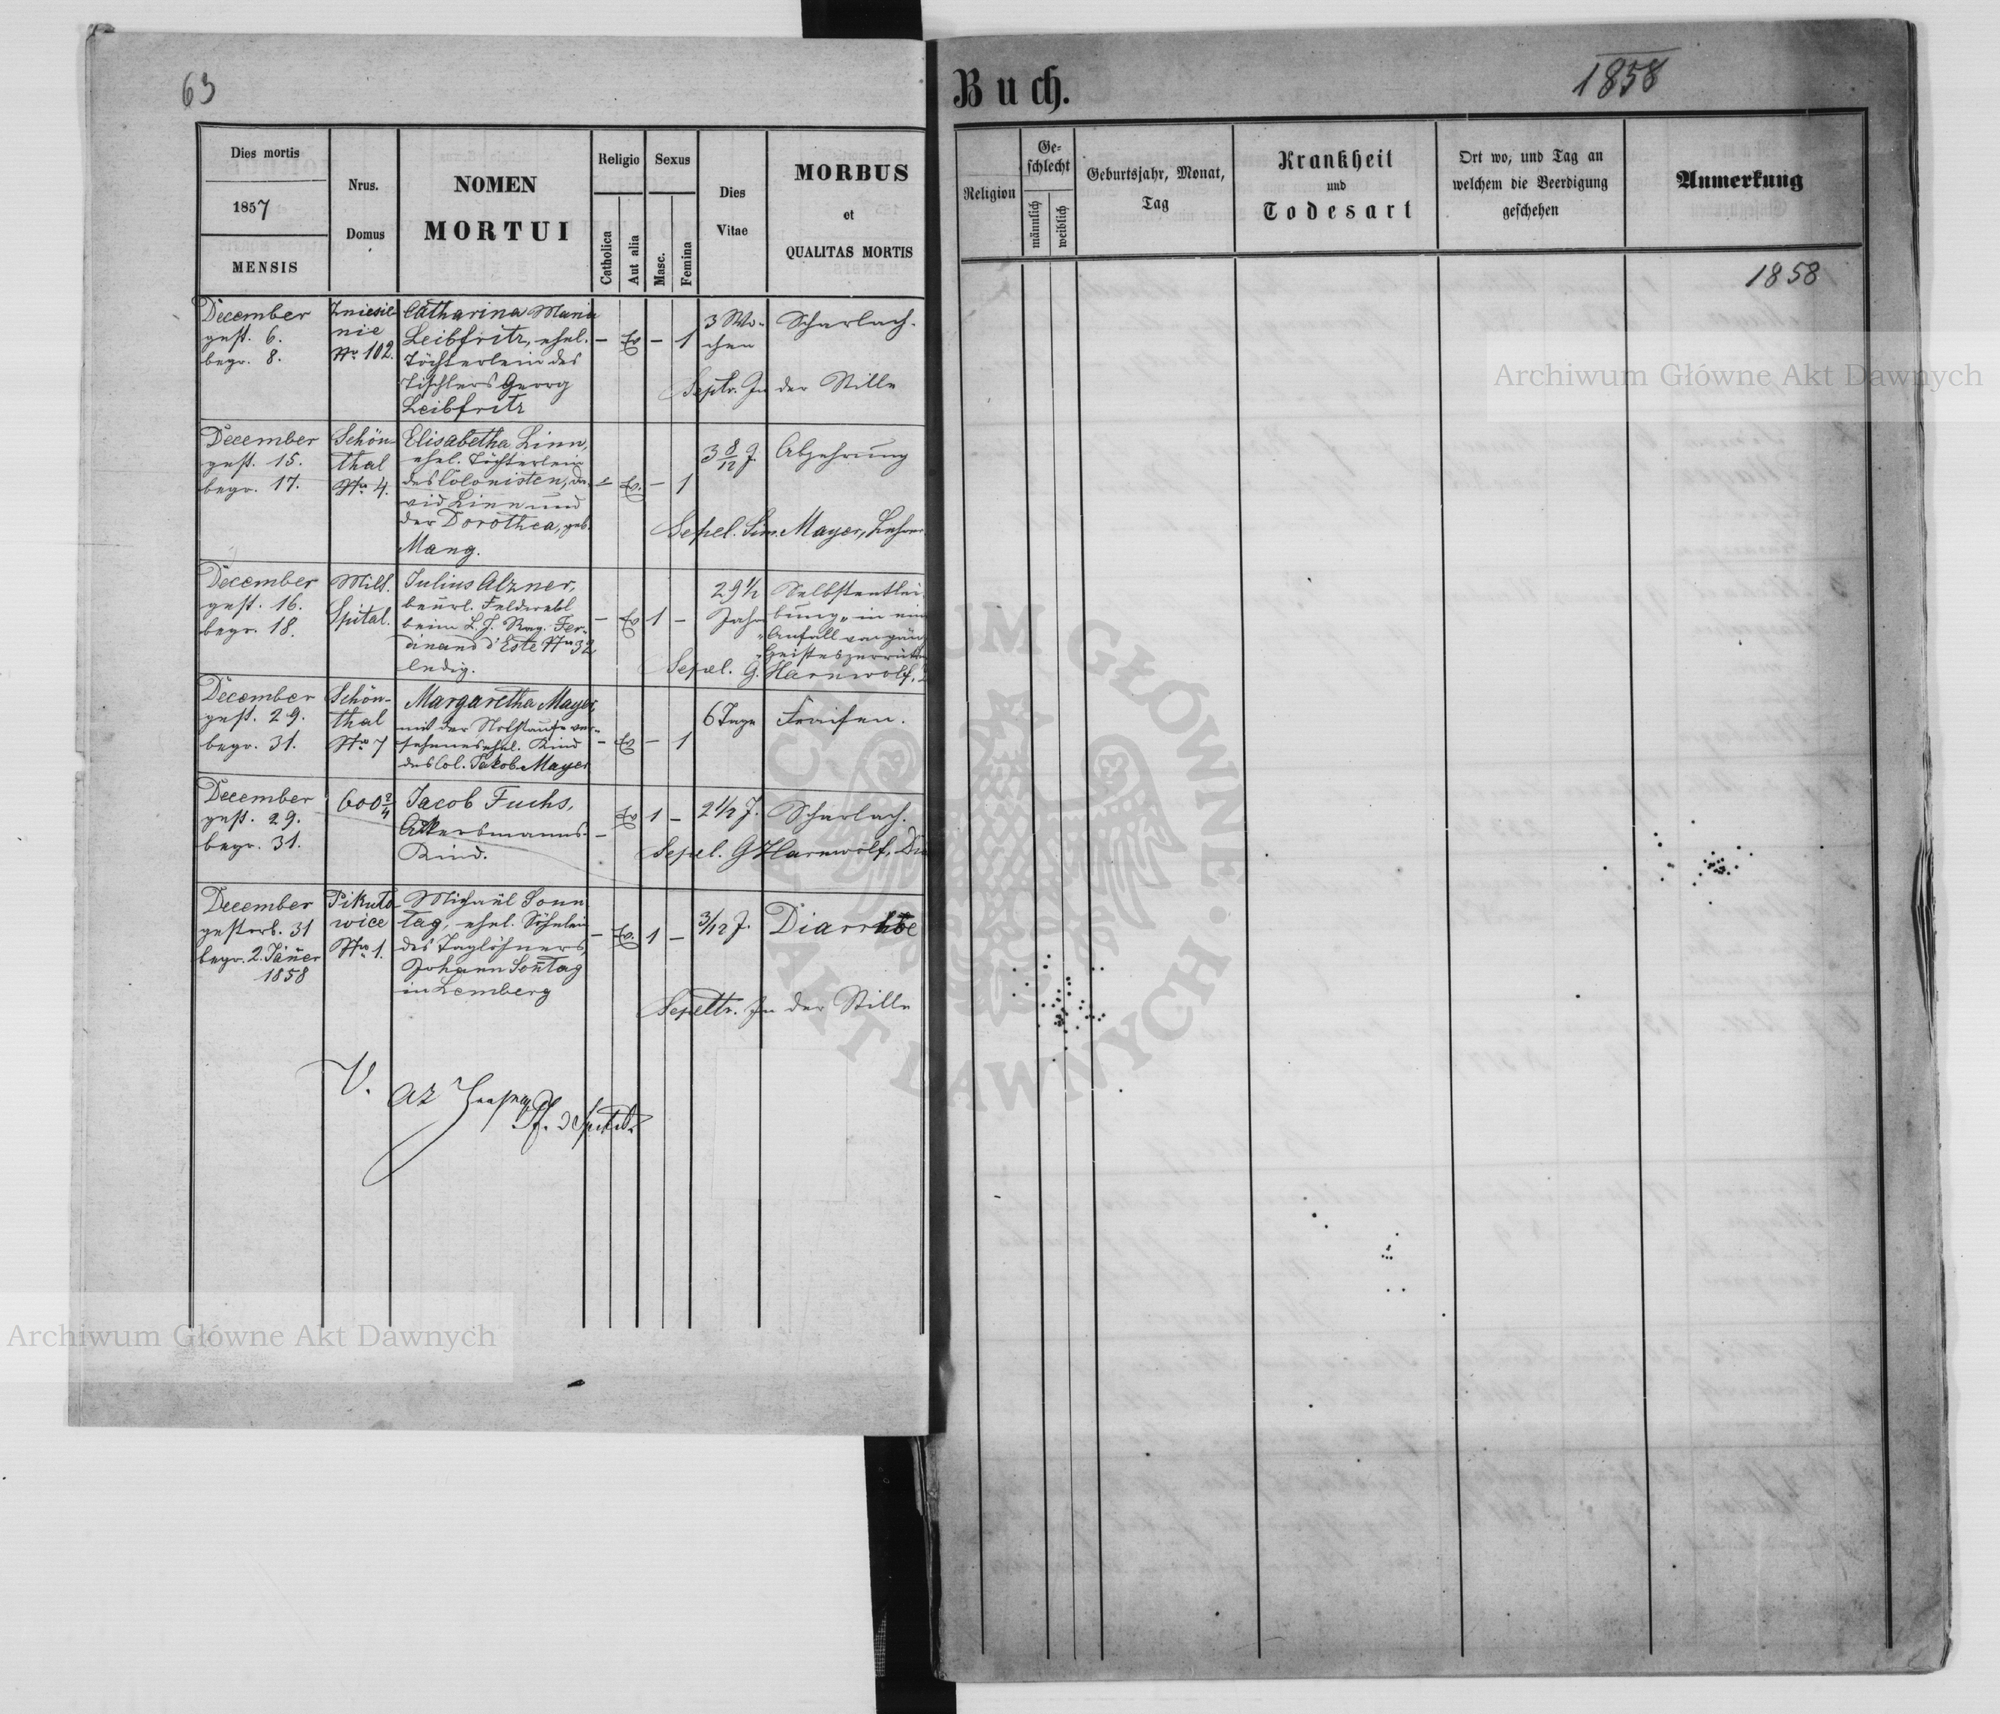 63
Dies mortis
1857
MENSIS
Nrus.
Domus
NOMEN
MORTUI
Religio
Catholica
Aut alia
Sexus
Masc.
Femina
Dies
Vitae
MORBUS
et
QUALITAS MORTIS
December
gest. 6.
begr. 8.
Zniesie
nie
Nr 102.
Catharina Maria
Leibfritz, ehel.
Töchterlein des
Tischlers Georg
Leibfritz
– Ev – 1
3 Wo-
chen
Scharlach.
Sepltr. In der Stille
December
gest. 15.
begr. 17.
Schön-
thal
Nr 4.
Elisabetha Linn,
ehel. Töchterlein
des Colonisten, Da-
vid Linn und
der Dorothea, geb.
Mang.
– Ev. – 1
3 8/12 J.
Abzehrung
Sepel. Sim. Mayer, Lehrer
December
gest. 16.
begr. 18.
Milt.
Spital.
Julius Alzner,
beurl. Feldwebl
beim L. J. Reg. Fer-
dinand d'Este Nr 32
ledig.
– Ev 1 –
29 1/2
Jahr
Selbstentlei-
bung „in ein
Anfall
Sepel. G. Harnwolf,
December
gest. 29.
begr. 31.
Schön-
thal
Nr 7
Margaretha Mayer,
mit der Nothtaufe ver-
sehenes ehel. Kind
des Col. Jakob Mayer
– Ev – 1
6 Tage
Fraisen.
December
gest. 29.
begr. 31.
600 2/4
Jacob Fuchs,
Ackersmanns
Kind.
– Ev 1 –
2 1/2 J.
Scharlach.
Sepel. G Harnwolf,
December
gestorb. 31
begr. 2. Jäner
1858
Pikuto-
wice
Nr 1.
Michael Sonn
tag, ehel. Söhnlein
des Taglöhners,
Johann Sontag
in Lemberg
– Ev. 1 –
3/12 J.
Diarrhöe
Sepeltr. In der Stille
V.
Buch.
1858
Religion
Ge-
schlecht
männlich
weiblich
Geburtsjahr, Monat,
Tag
Krankheit
und
Todesart
Ort wo, und Tag an
welchem die Beerdigung
geschehen
Anmerkung
1858
Archiwum Główne Akt Dawnych
Archiwum Główne Akt Dawnych
ARCHIWUM GŁÓWNE AKT DAWNYCH